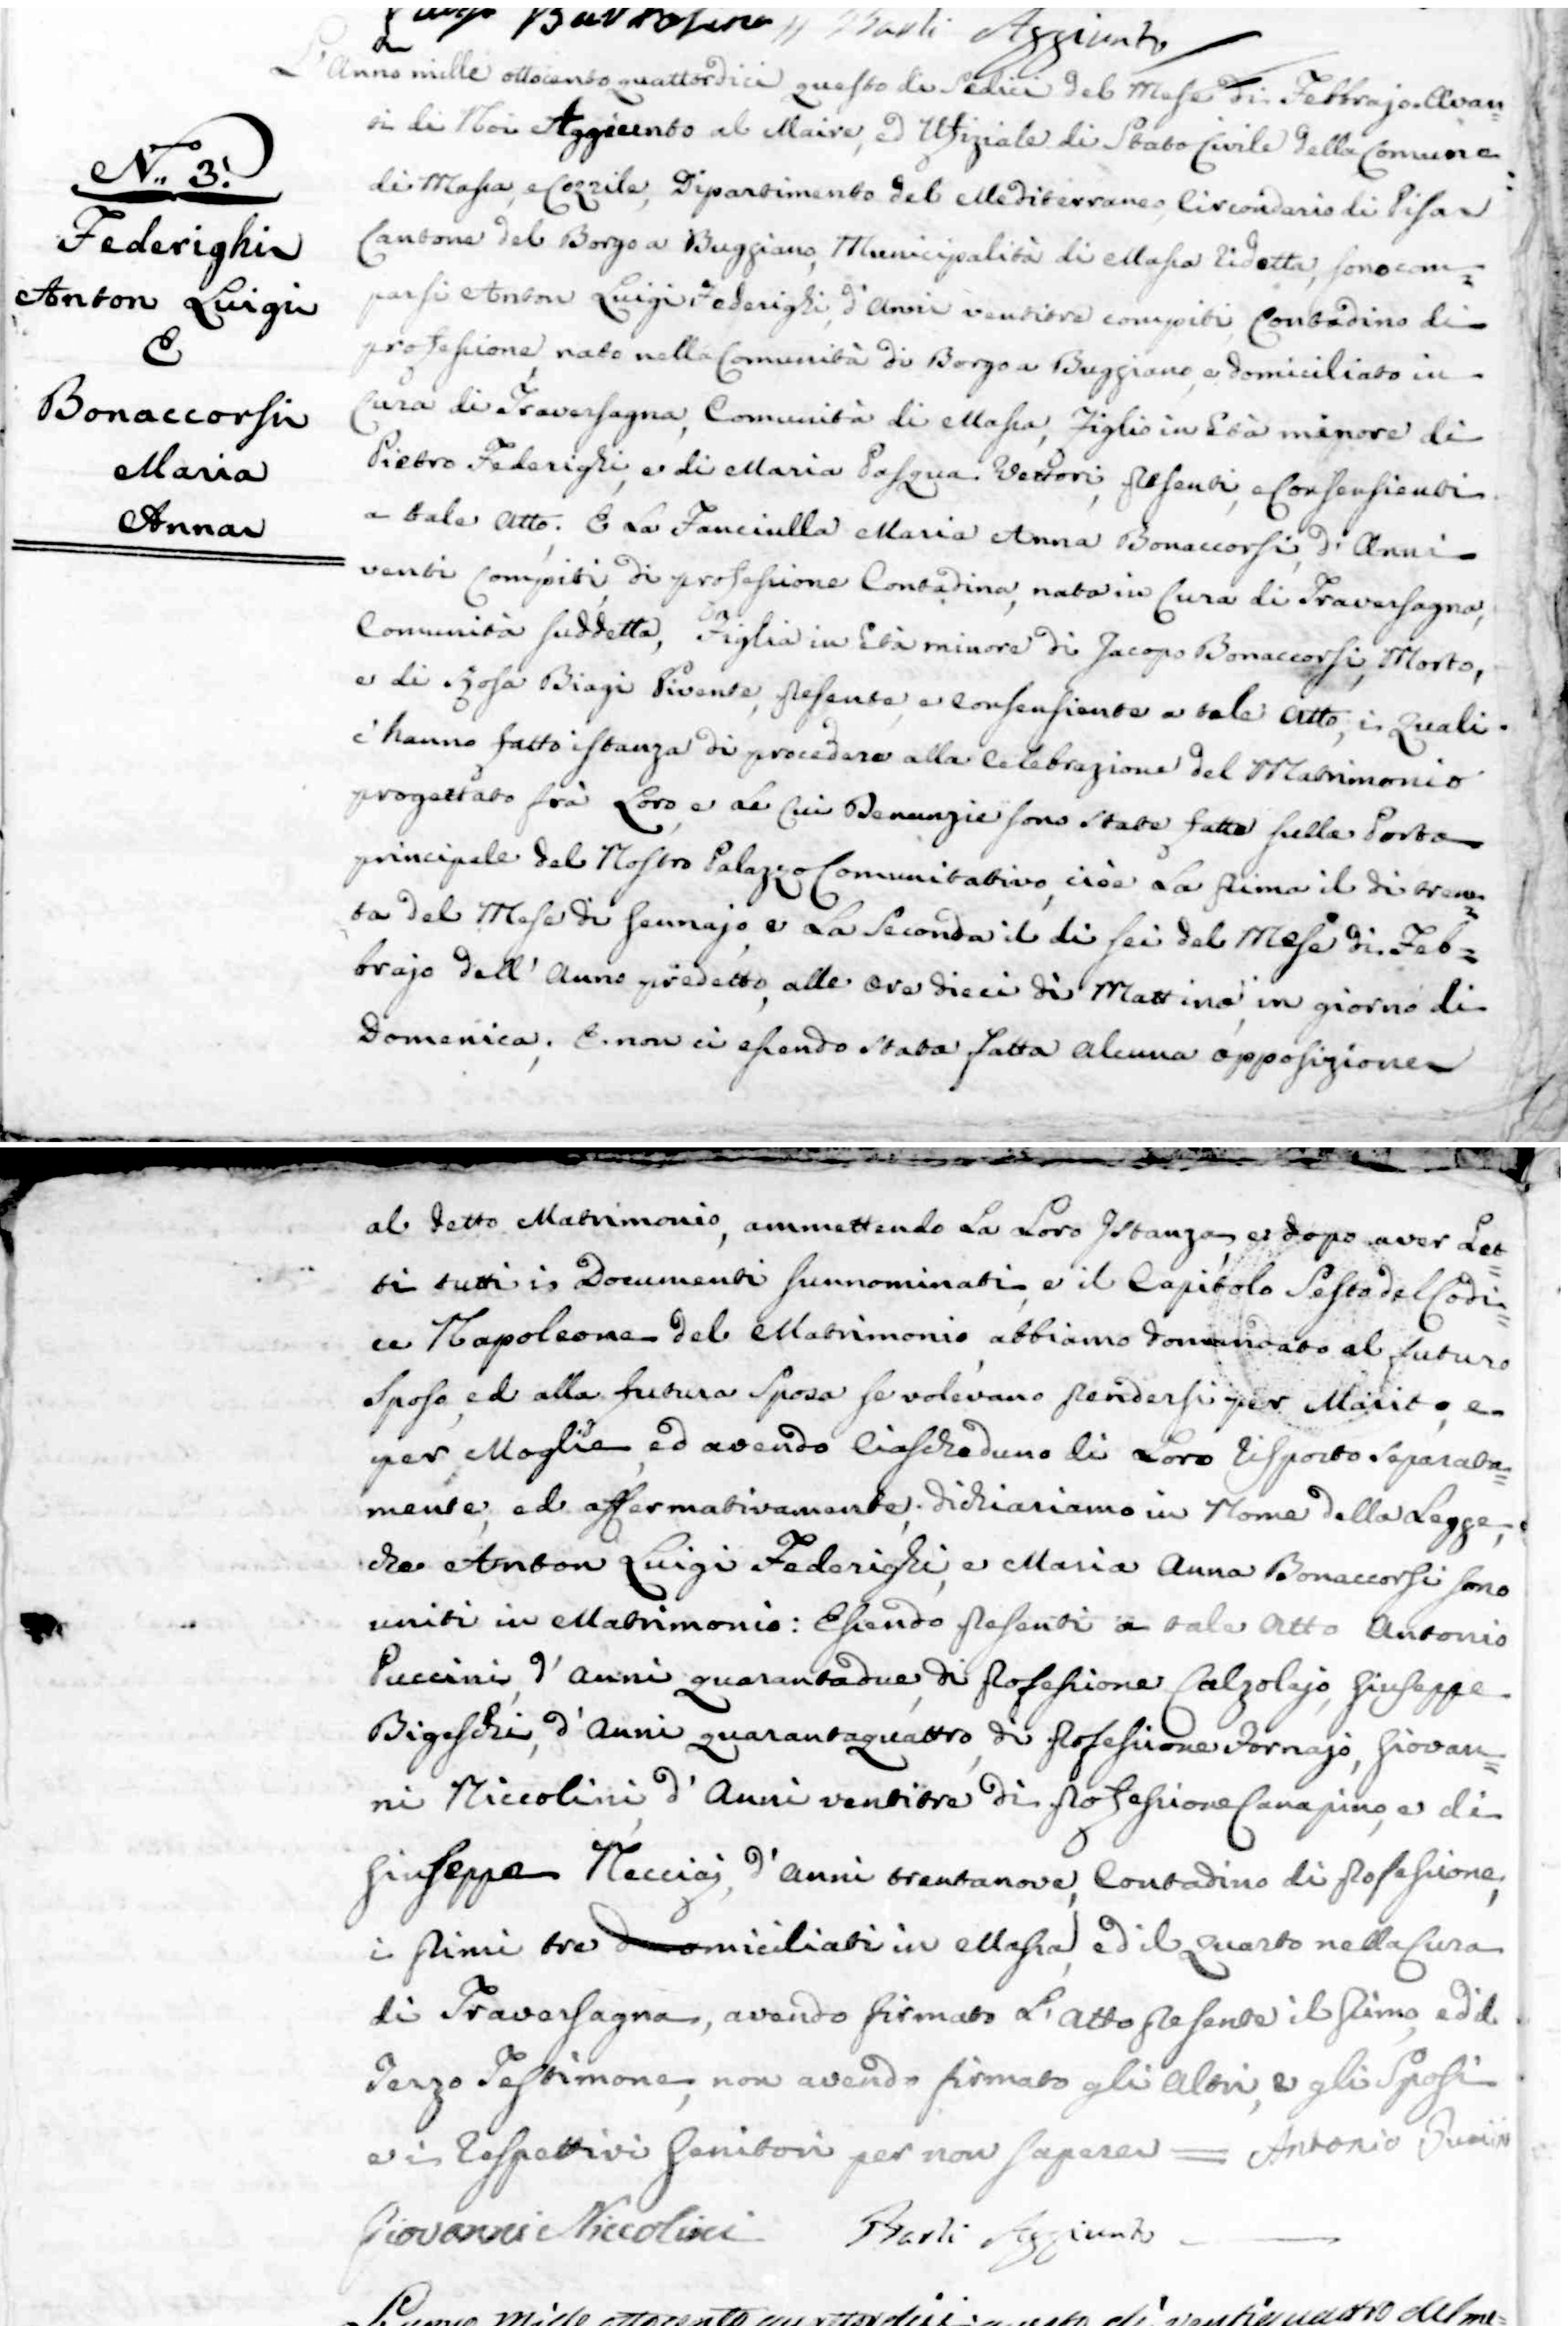 Barli Aggiunto
L'Anno mille ottocento quattordici questo di Sedici del Mese di Febbrajo. Avan=
ti di Noi Aggiunto al Maire, ed Ufiziale di Stato Civile della Comune
di Massa, e Cozzile, Dipartimento del Mediterraneo, Circondario di Pisa
Cantone del Borgo a Buggiano, Municipalità di Massa sudetta, sono com=
parsi Anton Luigi Federighi, d'Anni ventitre compiti, Contadino di
professione, nato nella Comunità di Borgo a Buggiano, e domiciliato in
Cura di Traversagna, Comunità di Massa, Figlio in Età minore di
Pietro Federighi, e di Maria Pasqua Vettori, presenti, e Consensienti
a tale Atto. E La Fanciulla Maria Anna Bonaccorsi, d'Anni
venti compiti, di professione Contadina, nata in Cura di Traversagna,
Comunità suddetta, Figlia in Età minore di Jacopo Bonaccorsi, Morto,
e di Rosa Biagi Vivente, presente, e Consensiente a tale Atto, i Quali
c'hanno fatto istanza di procedere alla Celebrazione del Matrimonio
progettato frà Loro, e Le Cui Denunzie sono state fatte sulla Porta
principale del Nostro Palazzo Comunitativo, cioè La prima il di tren=
ta del Mese di Gennajo, e La Seconda il di sei del Mese di Feb=
brajo dell' Anno predetto, alle ore dieci di Mattina in giorno di
Domenica; E non ci essendo stata fatta alcuna opposizione
N.. 3.
Federighi
Anton Luigi
E
Bonaccorsi
Maria
Anna
al detto Matrimonio, ammettendo La Loro Istanza, e dopo aver Let=
ti tutti i Documenti sunnominati, e il Capitolo Sesto del Codi=
ce Napoleone del Matrimonio, abbiamo domandato al futuro
Sposo, ed alla futura Sposa se volevano prendersi per Marito, e
per Moglie, ed avendo Ciascheduno di Loro risposto separata=
mente, ed affermativamente, dichiariamo in Nome della Legge,
che Anton Luigi Federighi, e Maria Anna Bonaccorsi sono
uniti in Matrimonio: Essendo presenti a tale Atto Antonio
Puccini, d'anni quarantadue, di professione Calzolajo, Giuseppe
Bigeschi, d'Anni quarantaquattro, di professione Fornajo, Giovan=
ni Niccolini d'Anni ventitre di professione Canapino, e di
Giuseppe Necciaj, d'Anni trentanove, Contadino di professione,
i primi tre domiciliati in Massa, ed il quarto nella Cura
di Traversagna, avendo firmato L'Atto presente il primo, ed il
Terzo Testimone, non avendo firmato gli Altri, e gli Sposi
e i Respettivi Genitori per non sapere = Antonio
Giovanni Niccolini Barli Aggiunto
L'anno mille ottocento quattordici questo di ventiquattro del me=